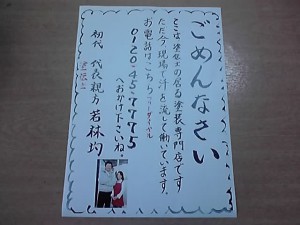 ごめんなさい
ここは塗装工の居る塗装専門店です
ただ今現場で汗を流して働いています。
お電話はこちらフリーダイヤル
0120-45-7775
へおかけ下さいね。
初代 代表親方 若林均
塗装工